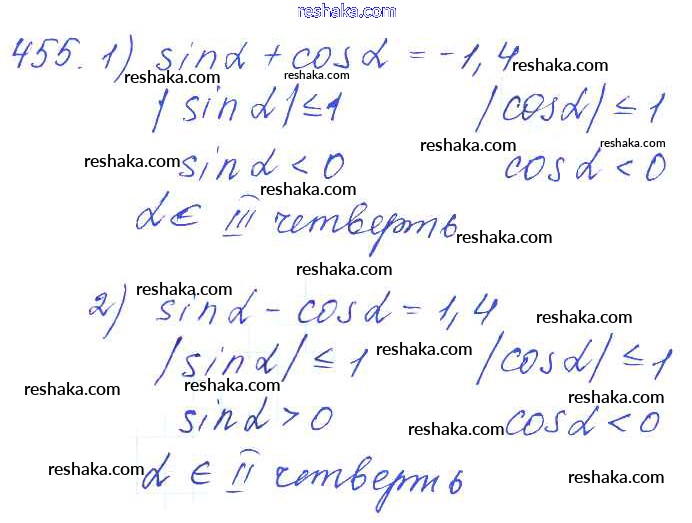 reshaka.com
455. 1) sinα + cosα = -1,4
reshaka.com reshaka.com reshaka.com
|sinα| ≤ 1 |cosα| ≤ 1
reshaka.com reshaka.com reshaka.com
reshaka.com sinα < 0 cosα < 0
reshaka.com reshaka.com
α ∈ III четверть
reshaka.com
reshaka.com
reshaka.com
2) sinα - cosα = 1,4
reshaka.com
reshaka.com
|sinα| ≤ 1 |cosα| ≤ 1
reshaka.com reshaka.com reshaka.com
sinα > 0 cosα < 0
reshaka.com
reshaka.com α ∈ II четверть reshaka.com